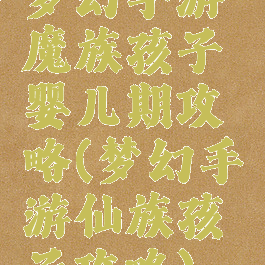 梦幻手游
魔族孩子
婴儿期攻
略(梦幻手
游仙族孩
子攻略)